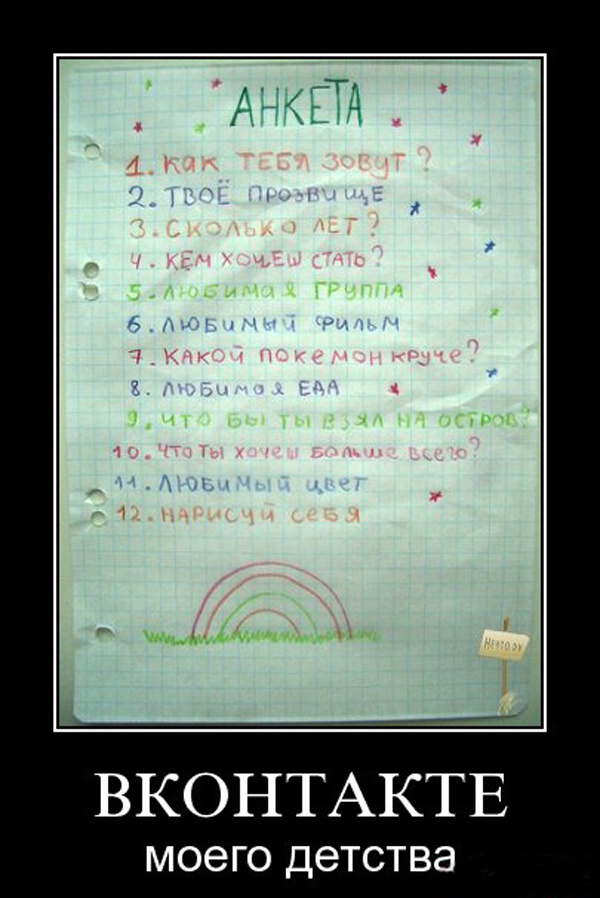 АНКЕТА
1. КАК ТЕБЯ ЗОВУТ?
2. ТВОЁ ПРОЗВИЩЕ
3. СКОЛЬКО ЛЕТ?
4. КЕМ ХОЧЕШ СТАТЬ?
5. ЛЮБИМАЯ ГРУППА
6. ЛЮБИМЫЙ ФИЛЬМ
7. КАКОЙ ПОКЕМОН КРУЧЕ?
8. ЛЮБИМАЯ ЕДА
9. ЧТО БЫ ТЫ ВЗЯЛ НА ОСТРОВ?
10. ЧТО ТЫ ХОЧЕШ БОЛЬШЕ ВСЕГО?
11. ЛЮБИМЫЙ ЦВЕТ
12. НАРИСУЙ СЕБЯ
ВКОНТАКТЕ
моего детства